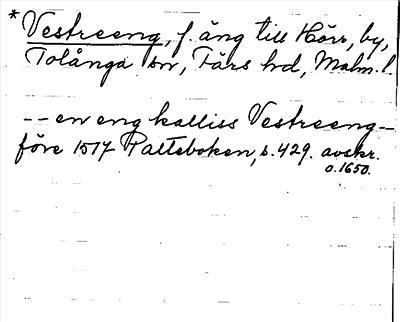 *Vestreeng, f. äng till Hörr, by,
Tolånga sn, Färs hd, Malm. l.
-- en eng kalliss Vestreeng --
före 1517 Palteboken, s. 429. avskr.
o. 1650.